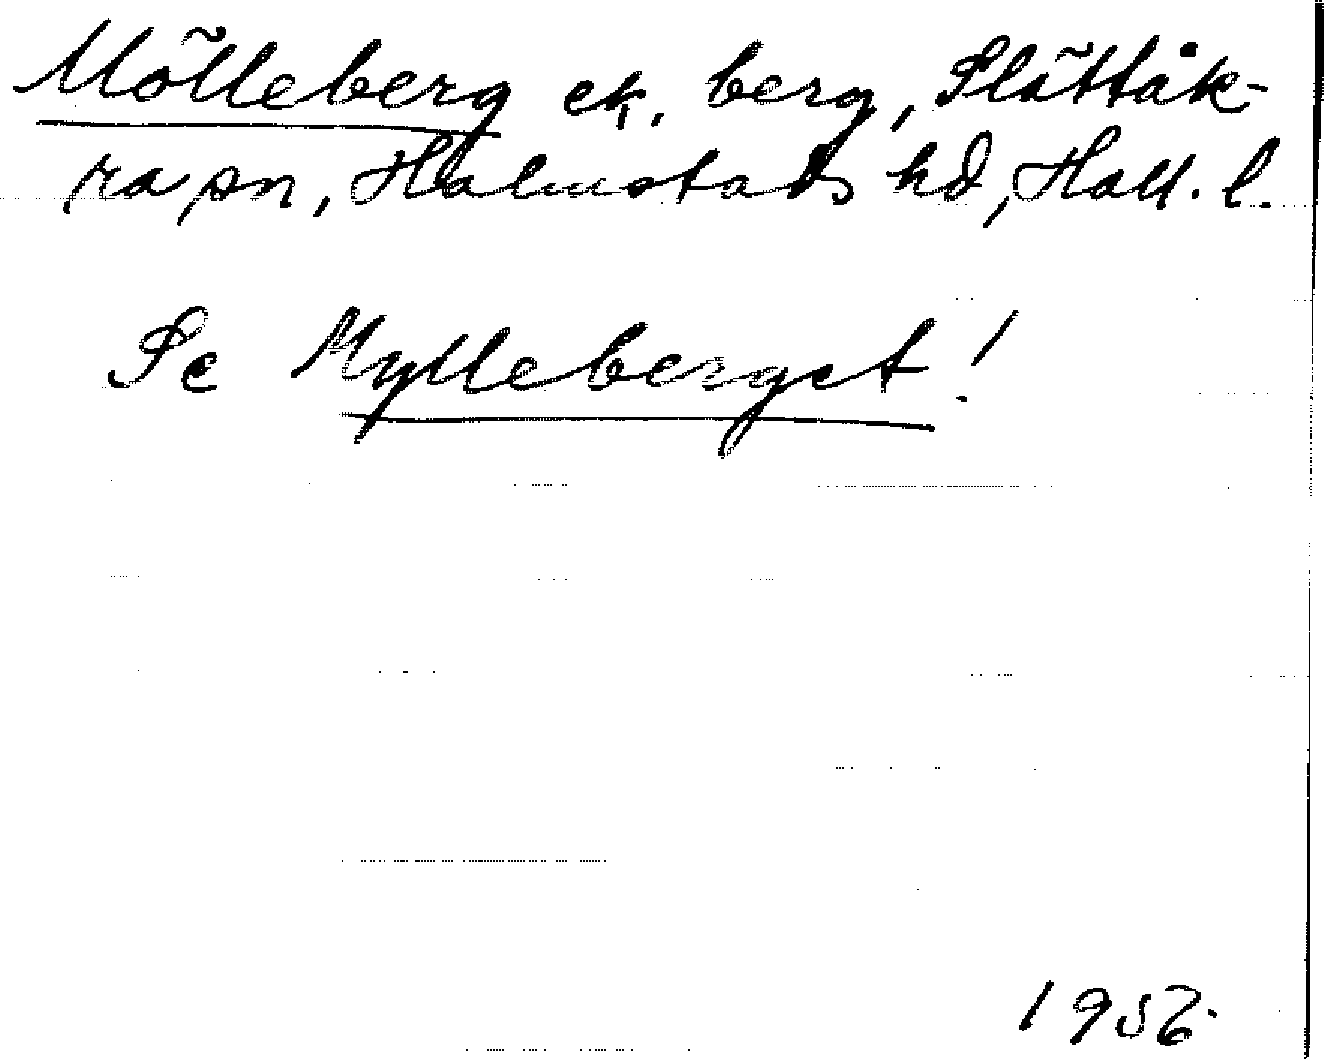 Mölleberg ek. berg, Slättåk-
ra sn, Halmstads hd, Hall. l.
Se Mylleberget!
1952.